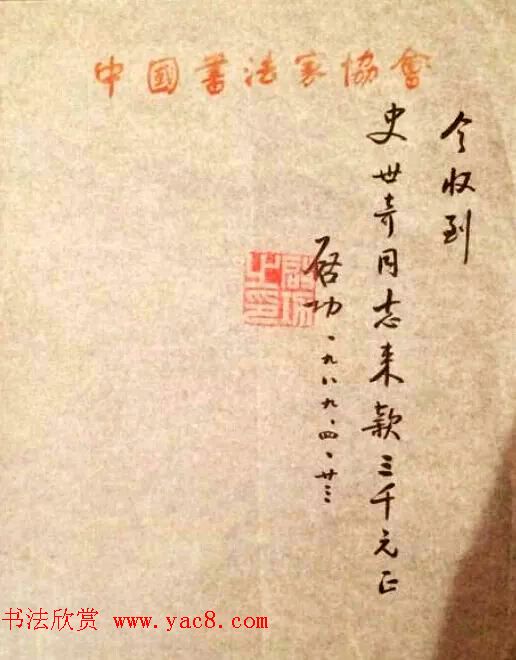 中國書法家協會
今收到
史世奇同志来款三千元正
启功 一九八九、四、廿三、
启功之印
书法欣赏 www.yac8.com